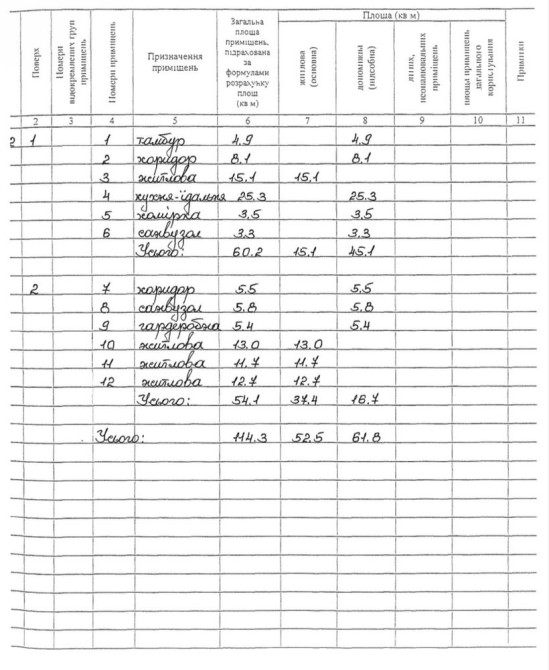 Поверх
Номери відокремлених груп приміщень
Номери приміщень
Призначення приміщень
Загальна площа приміщень, підрахована за формулами розрахунку площ (кв м)
Площа (кв м)
житлова (основна)
допоміжна (підсобна)
літніх, неопалювальних приміщень
площа приміщень загального користування
Примітки
2 3 4 5 6 7 8 9 10 11
2 1 1 тамбур 4.9 4.9
2 коридор 8.1 8.1
3 житлова 15.1 15.1
4 кухня-їдальня 25.3 25.3
5 комірка 3.5 3.5
6 санвузол 3.3 3.3
Усього: 60.2 15.1 45.1
2 7 коридор 5.5 5.5
8 санвузол 5.8 5.8
9 гардеробна 5.4 5.4
10 житлова 13.0 13.0
11 житлова 11.7 11.7
12 житлова 12.7 12.7
Усього: 54.1 37.4 16.7
Усього: 114.3 52.5 61.8